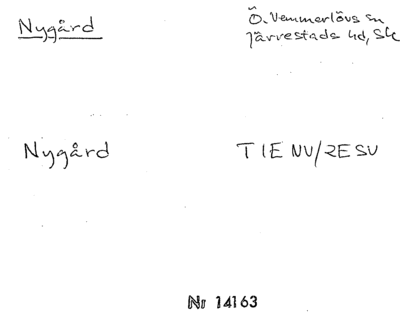 Nygård
Ö. Vemmerlövs sn
Järrestads hd, Sk
Nygård
TIENV/2ESV
Nr 14163